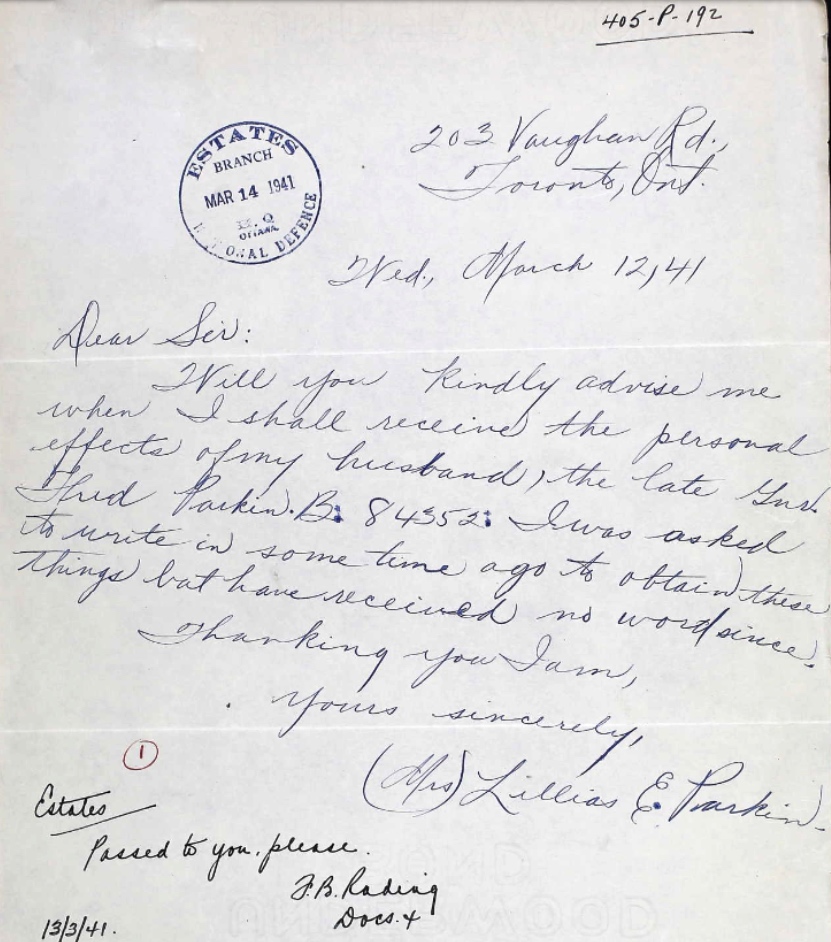 405-P-192
203 Vaughan Rd.,
Toronto, Ont.
ESTATES
BRANCH
MAR 14 1941
OTTAWA
NATIONAL DEFENCE
Wed., March 12, 41
Dear Sir:
Will you kindly advise me
when I shall receive the personal
effects of my husband, the late Gnr.
Fred Parkin. B: 84352: I was asked
to write in some time ago to obtain these
things but have received no word since.
Thanking you I am,
Yours sincerely,
(Mrs) Lillias E. Parkin.
1
Estates
Passed to you, please.
F.B.
Docs. 4
13/3/41.